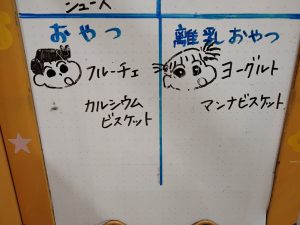 ジュース
おやつ
フルーチェ
カルシウム
ビスケット
離乳おやつ
ヨーグルト
マンナビスケット